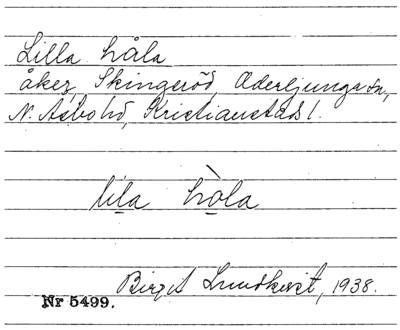 Lilla håla
åker, Skingeröd, Oderljunga sn,
N. Åsbo hd, Kristianstads l.
lila hòla
Birgit Lundkvist, 1938.
Nr 5499.